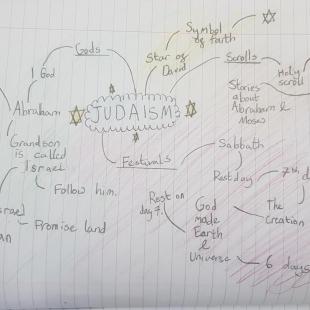 Symbol
of faith
Gods
Star of
David
Scrolls
1 God
Holy
scroll
Stories
about
Abraham &
Moses
Abraham
JUDAISM
Grandson
is called
Israel
Festivals
Sabbath
Rest day
7th
Follow him.
Rest on
day 7.
God
made
Earth
&
Universe
The
creation
Promise land
6 days